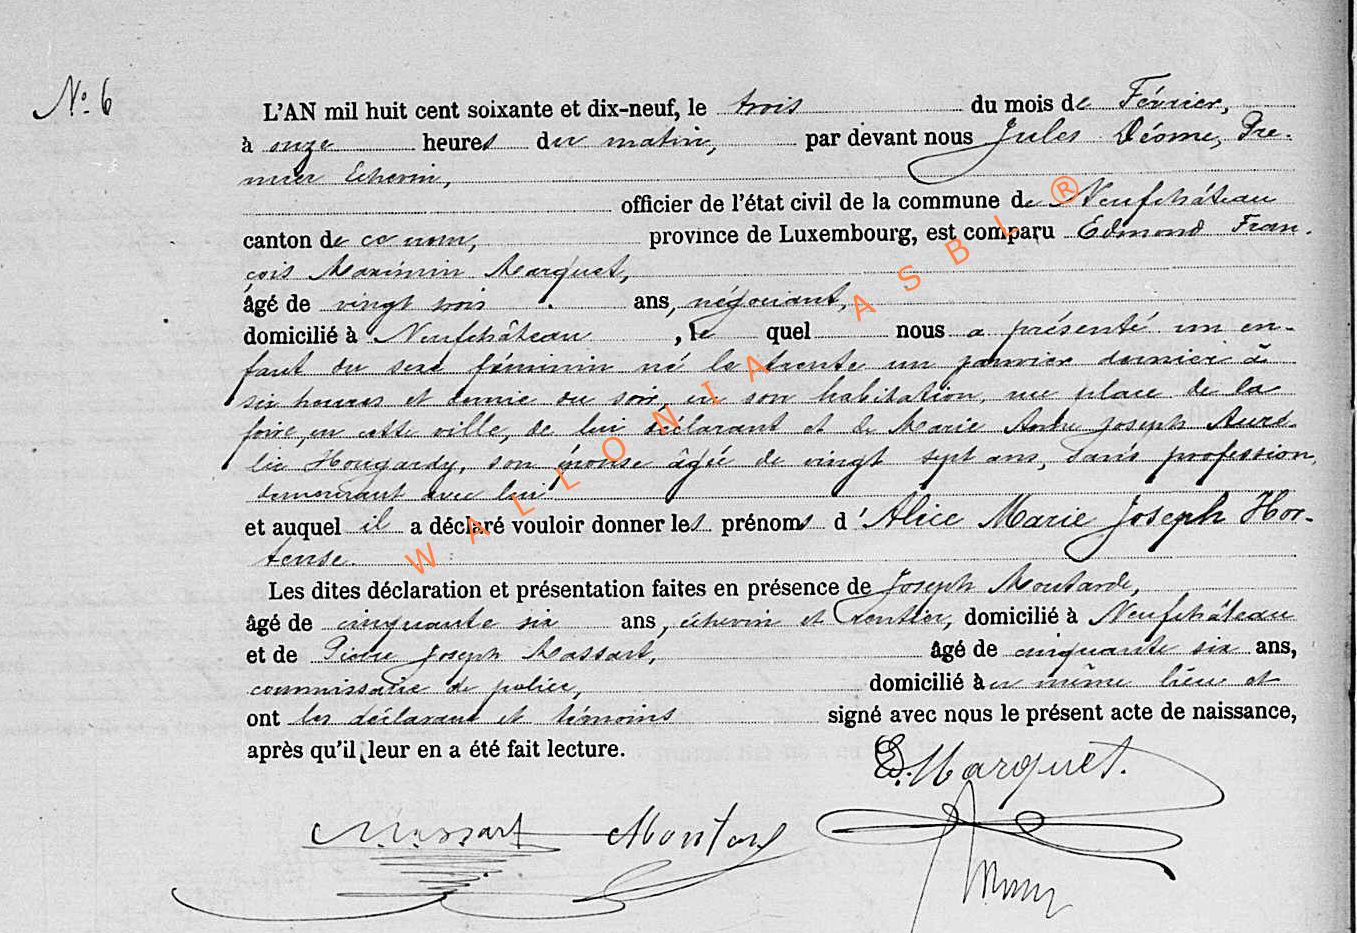 N° 6
L'AN mil huit cent soixante et dix-neuf, le trois du mois de Février,
à onze heures du matin, par devant nous Jules Déome, Pre-
mier Echevin,
officier de l'état civil de la commune de Neufchâteau
canton de ce nom, province de Luxembourg, est comparu Edmond Fran-
çois Maximin Marquet,
âgé de vingt trois ans, négociant,
domicilié à Neufchâteau, lequel nous a présenté un en-
fant du sexe féminin né le trente un janvier dernier à
six heures et demie du soir, en son habitation, place de la
foire, en cette ville, de lui déclarant et de Marie Joseph Auré-
lie Hougardy, son épouse âgée de vingt sept ans, sans profession,
demeurant avec lui
et auquel il a déclaré vouloir donner les prénoms d'Alice Marie Joseph Hor-
tense.
Les dites déclaration et présentation faites en présence de Joseph Moutarde,
âgé de cinquante six ans, échevin et rentier, domicilié à Neufchâteau
et de Pierre Joseph Massart, âgé de cinquante six ans,
commissaire de police, domicilié au même lieu et
ont les déclarant et témoins signé avec nous le présent acte de naissance,
après qu'il leur en a été fait lecture.
E. Marquet.
Massart
WALLONIA ASBL ®